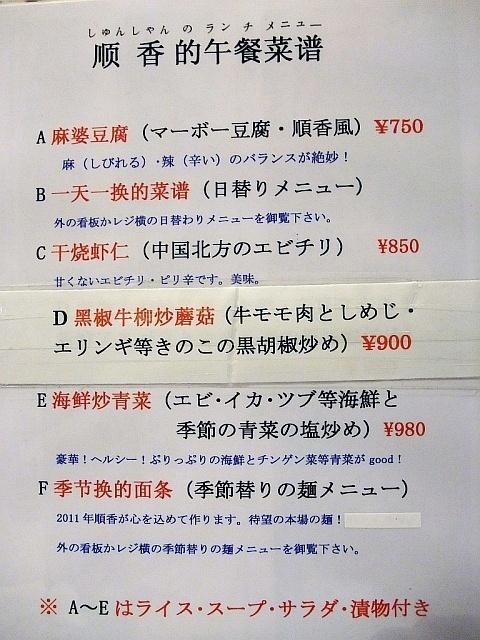 しゅんしゃん の ラ ン チ メニュー
順 香 的午餐菜谱
A 麻婆豆腐（マーボー豆腐・順香風）¥750
麻（しびれる）・辣（辛い）のバランスが絶妙！
B 一天一换的菜谱（日替りメニュー）
外の看板かレジ横の日替わりメニューを御覧下さい。
C 干烧虾仁（中国北方のエビチリ） ¥850
甘くないエビチリ・ピリ辛です。美味。
D 黑椒牛柳炒蘑菇（牛モモ肉としめじ・
エリンギ等きのこの黒胡椒炒め）¥900
E 海鲜炒青菜（エビ・イカ・ツブ等海鮮と
季節の青菜の塩炒め）¥980
豪華！ヘルシー！ぷりっぷりの海鮮とチンゲン菜等青菜が good！
F 季节换的面条（季節替りの麺メニュー）
2011 年順香が心を込めて作ります。待望の本場の麺！
外の看板かレジ横の季節替りの麺メニューを御覧下さい。
※ A～E はライス・スープ・サラダ・漬物付き